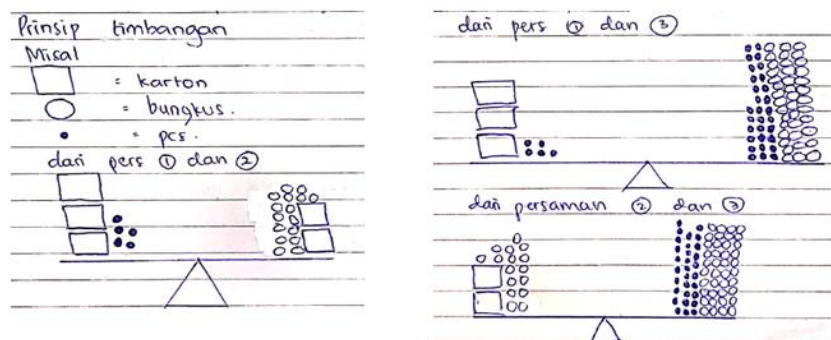 Prinsip timbangan
Misal
= karton
= bungkus.
= pcs.
dari pers ① dan ②
dari pers ① dan ③
dari persaman ② dan ③